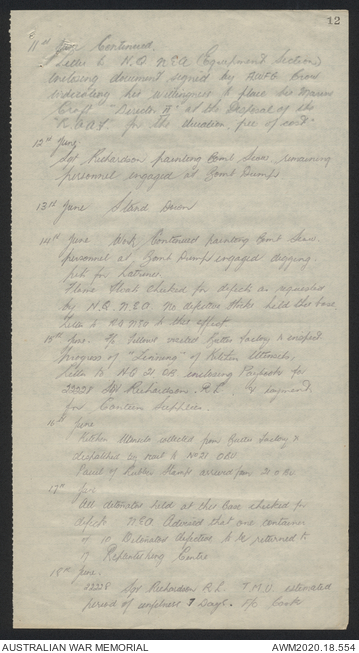 12
11th June Continued.
Letter to H.Q. N.E.A. (Equipment Section)
enclosing document signed by
indicating his willingness to place his Marine
Craft at the disposal of the
"R.A.A.F. for the duration, free of cost"
12th June
Sgt Richardson, painting Bomb Sows, remaining
personnel engaged at Bomb Dumps
13th June Stand Down
14th June Work Continued painting Bomb
personnel at Bomb Dumps engaged digging
pit for Latrines.
checked for defects as requested
by H.Q. N.E.A. No defective held this base
Letter to HQ NEA to this effect
15th June. F/O visited Butter factory to inspect
progress of "Tinning" of Kitchen Utensils,
Letter to N.O 21 O.B. enclosing Paybook for
22228 Sgt Richardson. R.L.
for Canteen Supplies.
16th June
Kitchen Utensils collected from Butter factory &
despatched by rail to No 21 OBU.
Parcel of Rubber Stamps arrived from 21 O.B.U.
17th June
All detonators held at this base checked for
defects N.E.A. Advised that one container
of 10 Detonators defective to be returned to
7 Replenishing Centre
18th June.
22228 Sgt Richardson R.L. T.M.U. estimated
period of unfitness 7 Days.
AUSTRALIAN WAR MEMORIAL
AWM2020.18.554